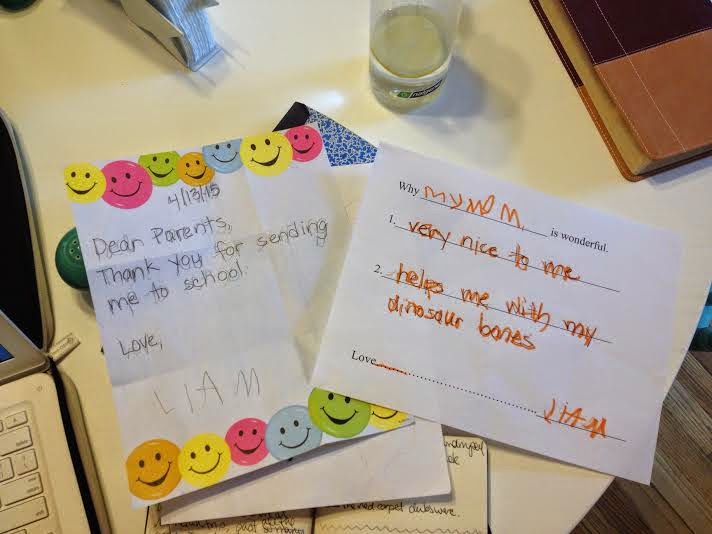 4/13/15
Dear Parents,
Thank you for sending
me to school.
Love,
LIAM
Why MY MOM, is wonderful.
1. very nice to me
2. helps me with my
dinosaur bones
Love LIAM
the red carpet